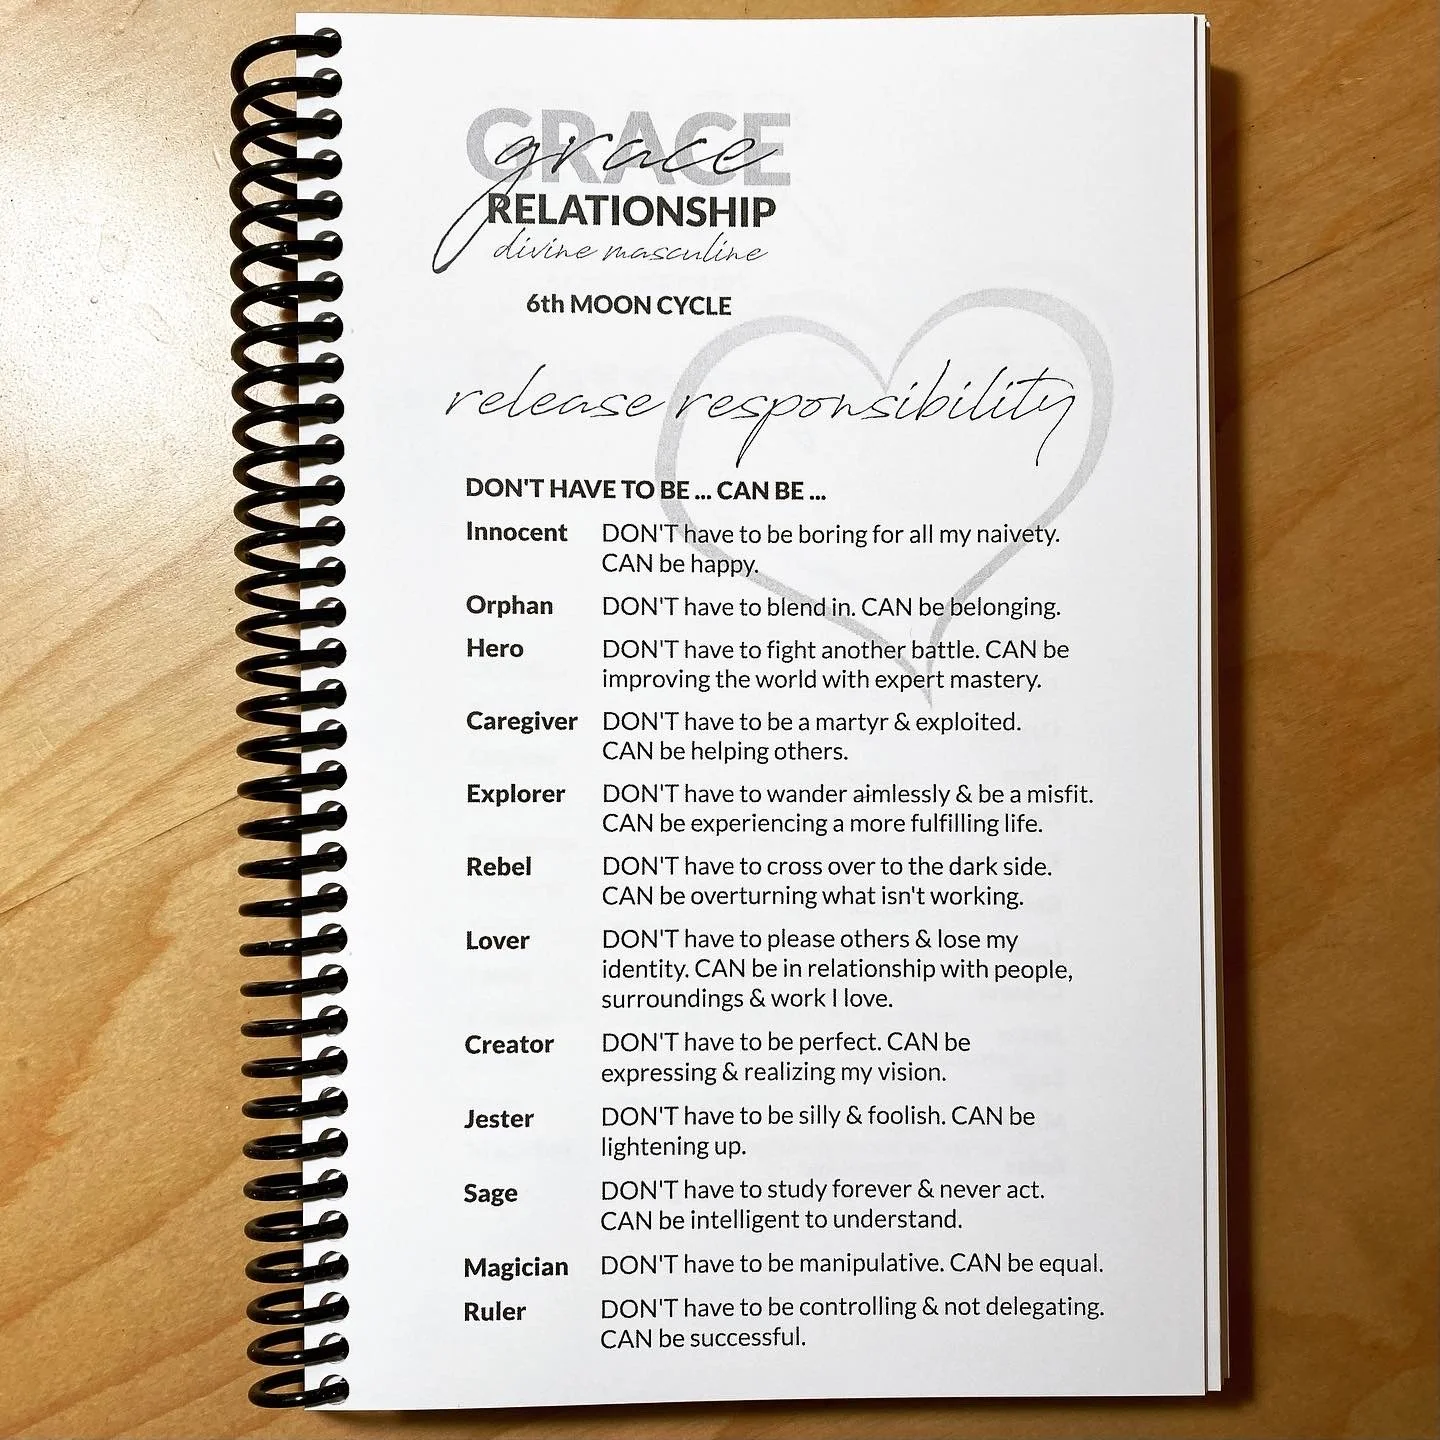 GRACE
grace
RELATIONSHIP
divine masculine
6th MOON CYCLE
release responsibility
DON'T HAVE TO BE ... CAN BE ...
Innocent DON'T have to be boring for all my naivety.
CAN be happy.
Orphan DON'T have to blend in. CAN be belonging.
Hero DON'T have to fight another battle. CAN be
improving the world with expert mastery.
Caregiver DON'T have to be a martyr & exploited.
CAN be helping others.
Explorer DON'T have to wander aimlessly & be a misfit.
CAN be experiencing a more fulfilling life.
Rebel DON'T have to cross over to the dark side.
CAN be overturning what isn't working.
Lover DON'T have to please others & lose my
identity. CAN be in relationship with people,
surroundings & work I love.
Creator DON'T have to be perfect. CAN be
expressing & realizing my vision.
Jester DON'T have to be silly & foolish. CAN be
lightening up.
Sage DON'T have to study forever & never act.
CAN be intelligent to understand.
Magician DON'T have to be manipulative. CAN be equal.
Ruler DON'T have to be controlling & not delegating.
CAN be successful.